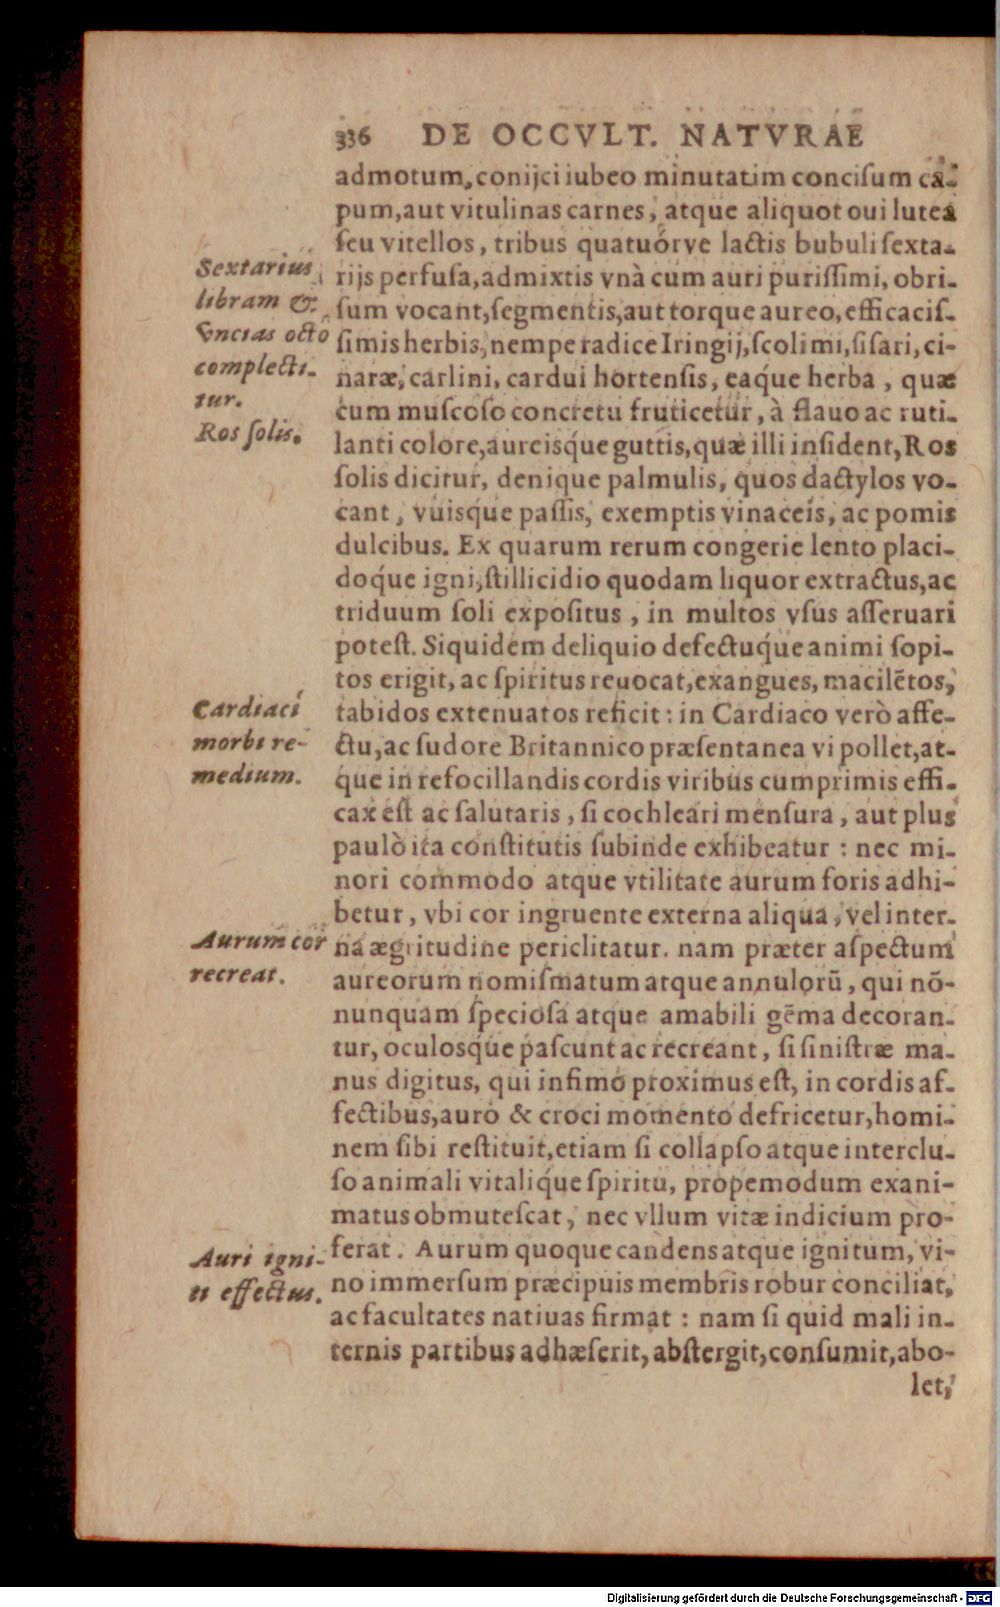 336 DE OCCVLT. NATVRAE
admotum, conijci iubeo minutatim concisum ca-
pum, aut vitulinas carnes, atque aliquot oui lutea
seu vitellos, tribus quatuórve lactis bubuli sexta-
Sextarius
libram &
vncias octo
complecti-
tur.
rijs perfusa, admixtis vnà cum auri purissimi, obri-
sum vocant, segmentis, aut torque aureo, efficacis-
simis herbis, nempe radice Iringij, scolimi, sisari, ci-
naræ, carlini, cardui hortensis, eaq́ue herba, quæ
cum muscoso concretu fruticetur, à flauo ac ruti-
Ros solis.
lanti colore, aureisq́ue guttis, quæ illi insident, Ros
solis dicitur, denique palmulis, quos dactylos vo-
cant, vuisq́ue passis, exemptis vinaceis, ac pomis
dulcibus. Ex quarum rerum congerie lento placi-
doq́ue igni, stillicidio quodam liquor extractus, ac
triduum soli expositus, in multos vsus asseruari
potest. Siquidem deliquio defectuq́ue animi sopi-
tos erigit, ac spiritus reuocat, exangues, macilētos,
Cardiaci
morbi re-
medium.
tabidos extenuatos reficit: in Cardiaco verò affe-
ctu, ac sudore Britannico præsentanea vi pollet, at-
que in refocillandis cordis viribus cumprimis effi-
cax est ac salutaris, si cochleari mensura, aut plus
paulò ita constitutis subinde exhibeatur: nec mi-
nori commodo atque vtilitate aurum foris adhi-
betur, vbi cor ingruente externa aliqua, vel inter-
Aurum cor
recreat.
na ægritudine periclitatur. nam præter aspectum
aureorum nomismatum atque annulorū, qui nō-
nunquam speciosa atque amabili gēma decoran-
tur, oculosq́ue pascunt ac recreant, si sinistræ ma-
nus digitus, qui infimo proximus est, in cordis af-
fectibus, auro & croci momento defricetur, homi-
nem sibi restituit, etiam si collapso atque interclu-
so animali vitaliq́ue spiritu, propemodum exani-
matus obmutescat, nec vllum vitæ indicium pro-
Auri igni-
ti effectus.
ferat. Aurum quoque candens atque ignitum, vi-
no immersum præcipuis membris robur conciliat,
ac facultates natiuas firmat: nam si quid mali in-
ternis partibus adhæserit, abstergit, consumit, abo-
let,
Digitalisierung gefördert durch die Deutsche Forschungsgemeinschaft - DFG